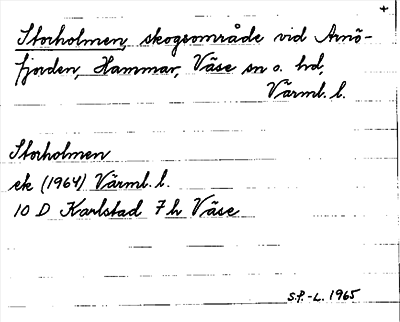 +
Storholmen, skogsområde vid Arnö-
fjorden, Hammar, Väse sn o. hd,
Värml. l.
Storholmen
ek (1964) Värml. l.
10 D Karlstad 7 h Väse
S.P.-L. 1965